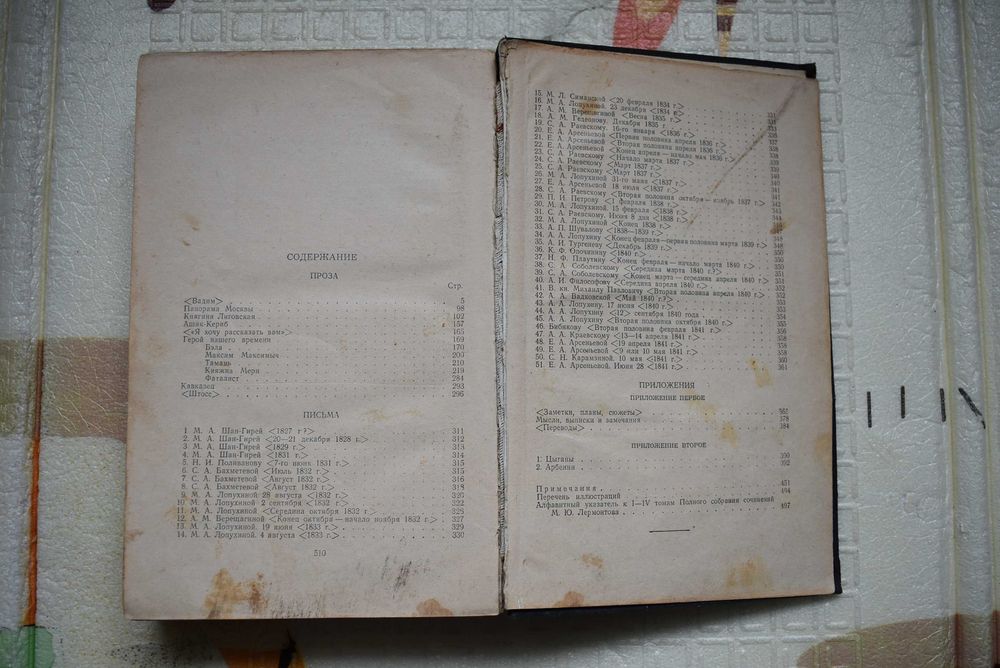 СОДЕРЖАНИЕ
ПРОЗА
Стр.
<Вадим> 5
Панорама Москвы 98
Княгиня Лиговская 102
Ашик-Кериб 157
<«Я хочу рассказать вам»> 165
Герой нашего времени 169
Бэла 170
Максим Максимыч 200
Тамань 210
Княжна Мери 219
Фаталист 284
Кавказец 293
<Штосс> 296
ПИСЬМА
1. М. А. Шан-Гирей <1827 г?> 311
2. М. А. Шан-Гирей <20—21 декабря 1828 г.> 312
3. М. А. Шан-Гирей <1829 г.> 313
4. М. А. Шан-Гирей <1831 г.> 314
5. Н. И. Поливанову <7-го июня 1831 г.> 315
6. С. А. Бахметевой <Июль 1832 г.> 315
7. С. А. Бахметевой <Август 1832 г.> 316
8. С. А. Бахметевой <Август 1832 г.> 318
9. М. А. Лопухиной. 28 августа <1832 г.> 320
10. М. А. Лопухиной 2 сентября <1832 г.>
11. М. А. Лопухиной <Середина октября 1832 г.>
12. А. М. Верещагиной <Конец октября—начало ноября 1832 г.> 327
13. М. А. Лопухиной. 19 июня <1833 г.> 329
14. М. А. Лопухиной. 4 августа <1833 г.> 330
510
15. М. Л. Симанской <20 февраля 1834 г.>
16. М. А. Лопухиной. 23 декабря <1834 г.> 331
17. А. М. Верещагиной <Весна 1835 г.>
18. А. М. Гедеонову. Декабря 1835 г.
19. С. А. Раевскому. 16-го января <1836 г.>
20. Е. А. Арсеньевой <Первая половина апреля 1836 г.> 337
21. Е. А. Арсеньевой <Вторая половина апреля 1836 г.>
22. Е. А. Арсеньевой <Конец апреля—начало мая 1836 г.>
23. С. А. Раевскому <Начало марта 1837 г.>
24. С. А. Раевскому <Март 1837 г.>
25. С. А. Раевскому <Март 1837 г.>
26. М. А. Лопухиной 31-го мая <1837 г.>
27. Е. А. Арсеньевой 18 июля <1837 г.>
28. С. А. Раевскому <Вторая половина октября—ноябрь 1837 г.>
29. П. И. Петрову <1 февраля 1838 г.>
30. М. А. Лопухиной. 15 февраля <1838 г.>
31. С. А. Раевскому. Июня 8 дня <1838 г.>
32. М. А. Лопухиной <Конец 1838 г.>
33. А. П. Шувалову <1838—1839 г.>
34. А. А. Лопухину <Конец февраля—первая половина марта 1839 г.>
35. А. И. Тургеневу <Декабрь 1839 г.>
36. К. Ф. Опочинину <1840 г.>
37. Н. Ф. Плаутину <Конец февраля—начало марта 1840 г.>
38. С. А. Соболевскому <Середина марта 1840 г.>
39. С. А. Соболевскому <Конец марта—середина апреля 1840 г.> 351
40. А. И. Философову <Середина апреля 1840 г.>
41. В. кн. Михаилу Павловичу <Вторая половина апреля 1840 г.> 352
42. А. А. Вадковской <Май 1840 г.?>
43. А. А. Лопухину. 17 июня <1840 г.> 353
44. А. А. Лопухину <12> сентября 1840 года 354
45. А. А. Лопухину <Вторая половина октября 1840 г.> 355
46. Бибикову <Вторая половина февраля 1841 г.> 356
47. А. А. Краевскому <13—14 апреля 1841 г.>
48. Е. А. Арсеньевой <19 апреля 1841 г.> 358
49. Е. А. Арсеньевой <9 или 10 мая 1841 г.>
50. С. Н. Карамзиной. 10 мая <1841 г.> 360
51. Е. А. Арсеньевой. Июня 28 <1841 г.> 361
ПРИЛОЖЕНИЯ
ПРИЛОЖЕНИЕ ПЕРВОЕ
<Заметки, планы, сюжеты>
Мысли, выписки и замечания 378
<Переводы> 384
ПРИЛОЖЕНИЕ ВТОРОЕ
1. Цыганы 390
2. Арбенин 392
Примечания
Перечень иллюстраций
Алфавитный указатель к I—IV томам Полного собрания сочинений
М. Ю. Лермонтова 497